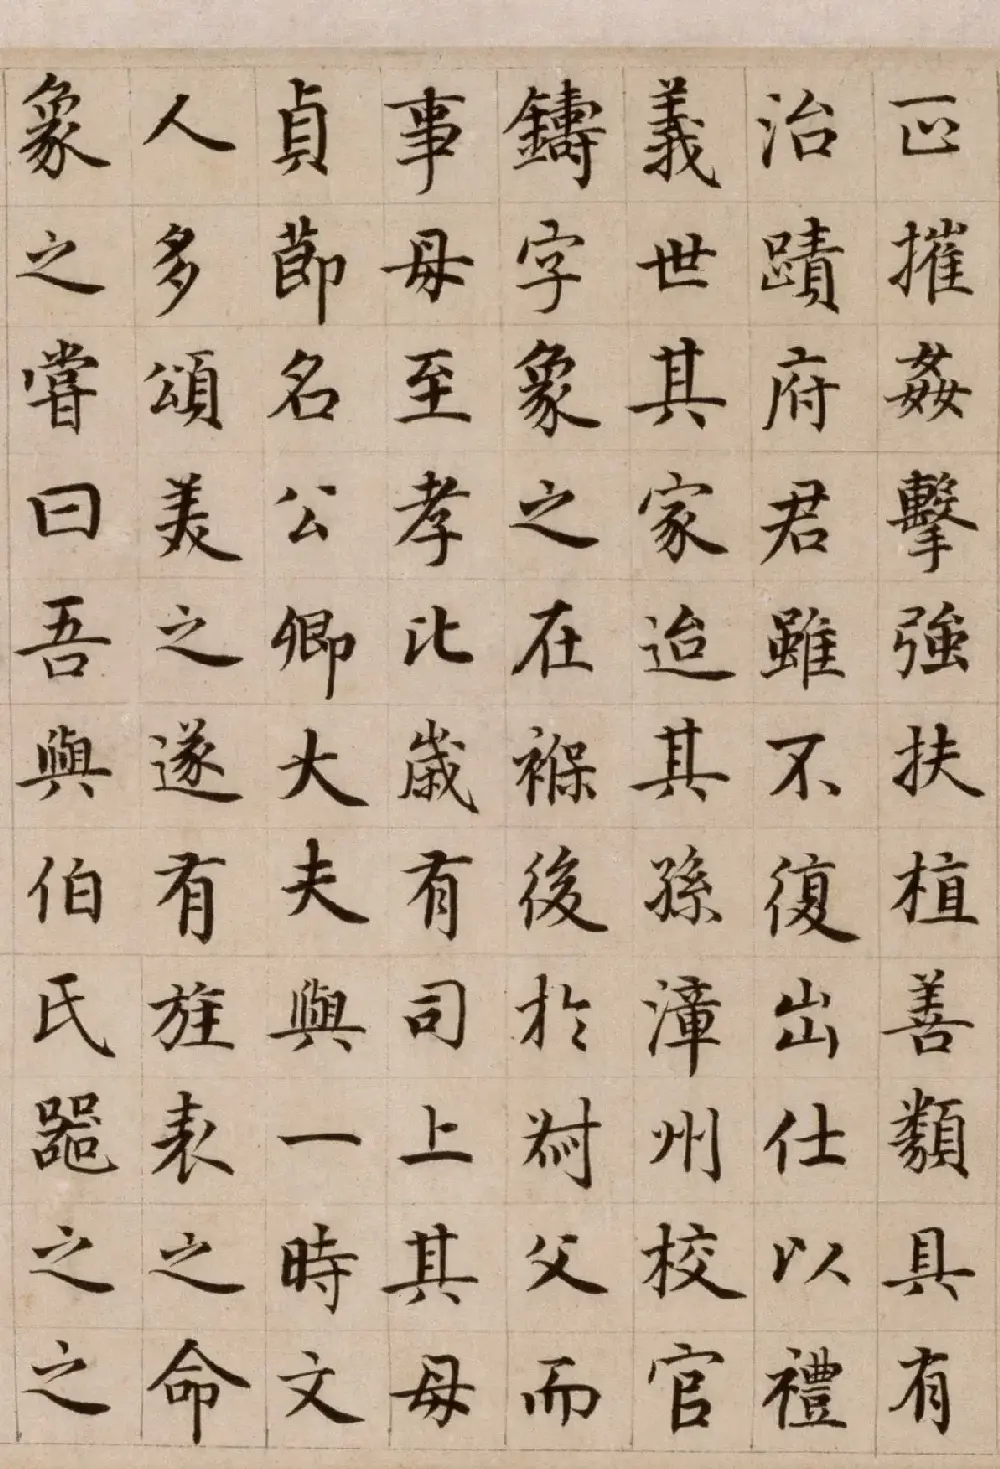 正摧姦擊強扶植善類具有
治蹟府君雖不復出仕以禮
義世其家迨其孫漳州校官
鑄字象之在褓後於尌父而
事母至孝比歲有司上其母
貞節名公卿大夫與一時文
人多頌美之遂有旌表之命
象之嘗曰吾與伯氏器之之